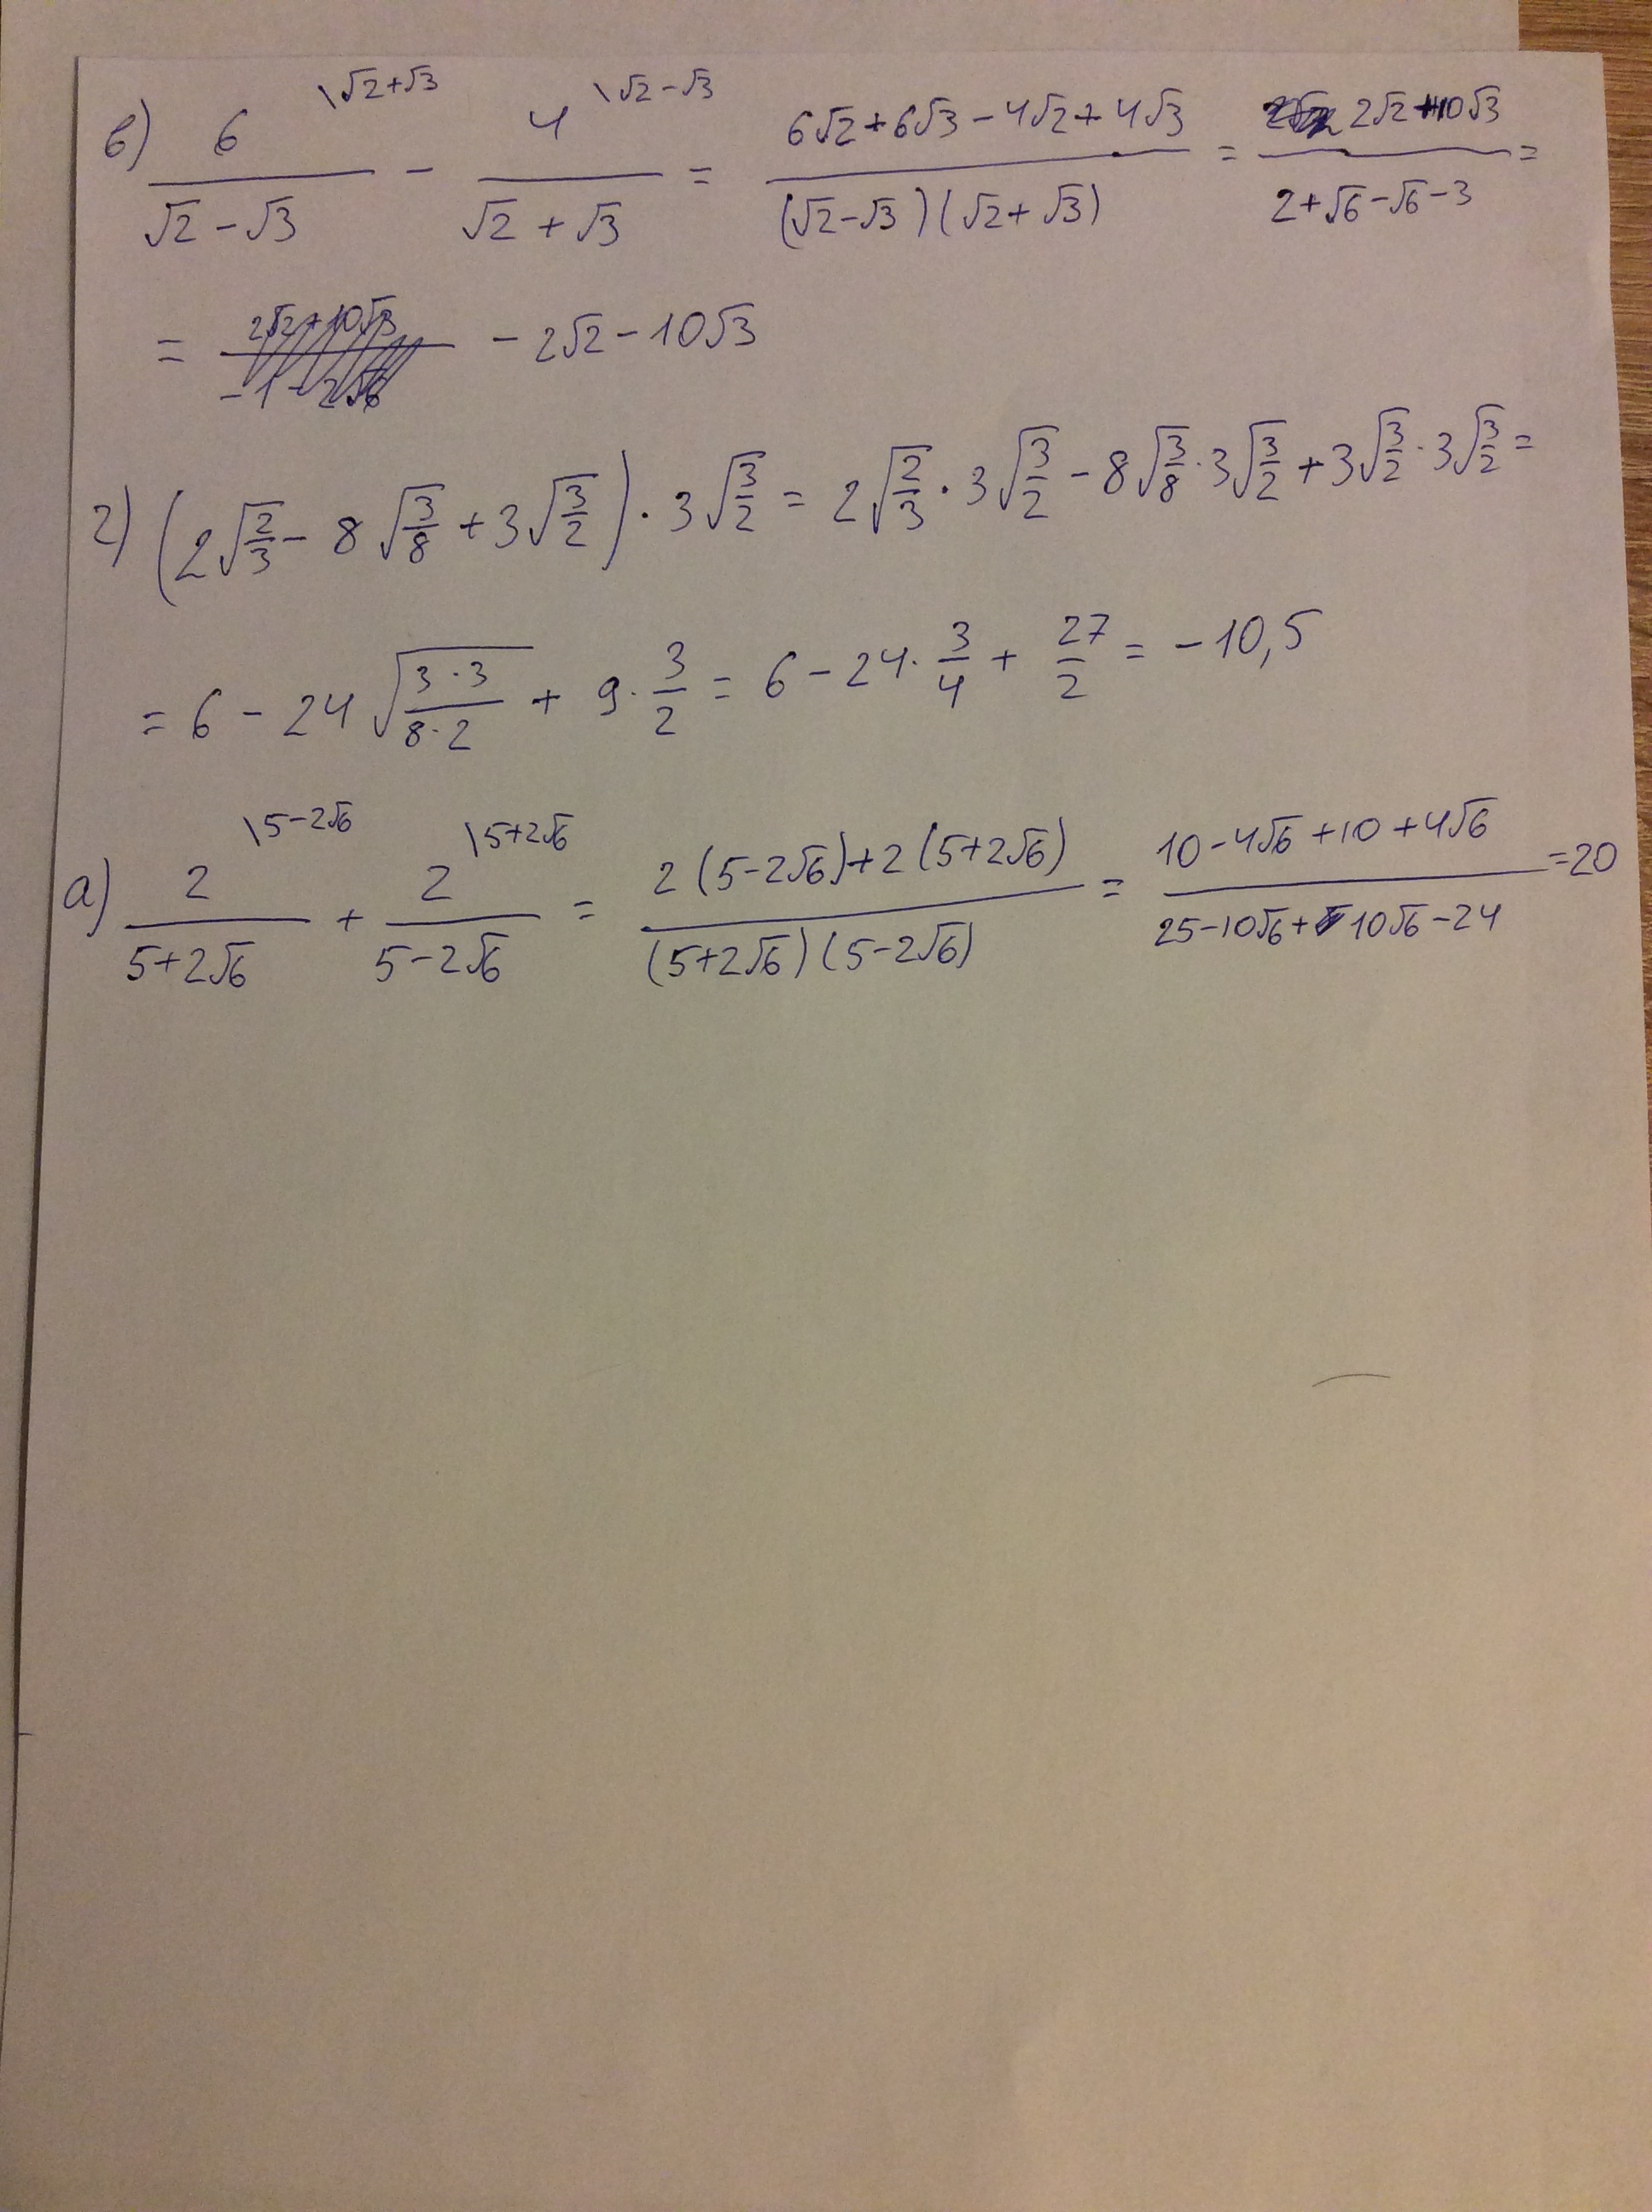 в) 6 \√2+√3 / (√2 - √3) - 4 \√2-√3 / (√2 + √3) = (6√2+6√3-4√2+4√3) / ((√2-√3)(√2+√3)) = (2√2+10√3) / (2+√6-√6-3) =
= (2√2+10√3) / (-1-2√6) -2√2-10√3
г) (2√(2/3) - 8√(3/8) + 3√(3/2)) · 3√(3/2) = 2√(2/3) · 3√(3/2) - 8√(3/8) · 3√(3/2) + 3√(3/2) · 3√(3/2) =
= 6 - 24√((3·3)/(8·2)) + 9·3/2 = 6 - 24·3/4 + 27/2 = -10,5
а) 2 \5-2√6 / (5+2√6) + 2 \5+2√6 / (5-2√6) = (2(5-2√6)+2(5+2√6)) / ((5+2√6)(5-2√6)) = (10-4√6+10+4√6) / (25-10√6+10√6-24) =20